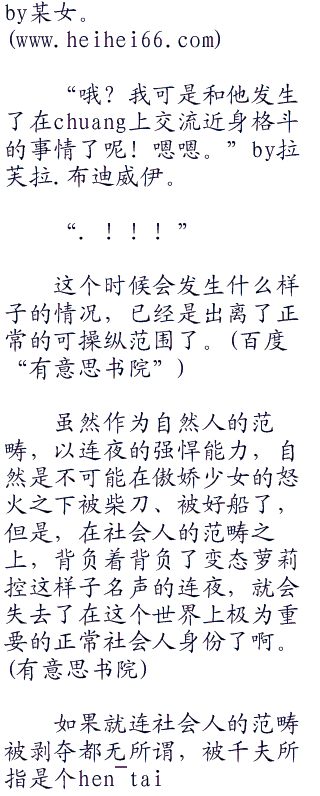 by某女。
(www.heihei66.com)
“哦？我可是和他发生
了在chuang上交流近身格斗
的事情了呢！嗯嗯。”by拉
芙拉.布迪威伊。
“.！！！！”
这个时候会发生什么样
子的情况，已经是出离了正
常的可操纵范围了。(百度
“有意思书院”)
虽然作为自然人的范
畴，以连夜的强悍能力，自
然是不可能在傲娇少女的怒
火之下被柴刀、被好船了，
但是，在社会人的范畴之
上，背负着背负了变态萝莉
控这样子名声的连夜，就会
失去了在这个世界上极为重
要的正常社会人身份了啊。
(有意思书院)
如果就连社会人的范畴
被剥夺都无所谓，被千夫所
指是个hen‾tai